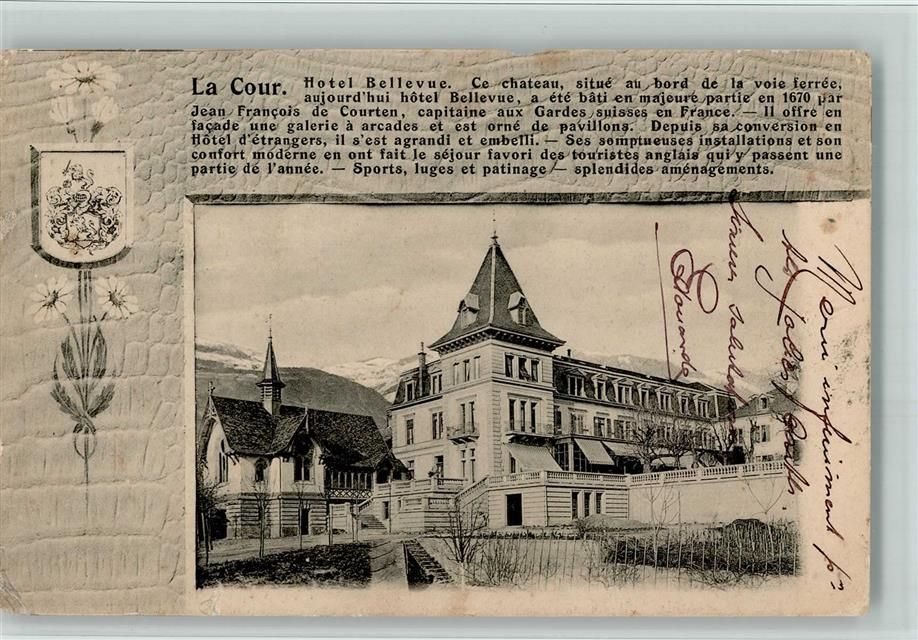 La Cour. Hotel Bellevue. Ce chateau, situé au bord de la voie ferrée,
aujourd'hui hôtel Bellevue, a été bâti en majeure partie en 1670 par
Jean François de Courten, capitaine aux Gardes suisses en France. — Il offre en
façade une galerie à arcades et est orné de pavillons. Depuis sa conversion en
Hôtel d'étrangers, il s'est agrandi et embelli. — Ses somptueuses installations et son
confort moderne en ont fait le séjour favori des touristes anglais qui y passent une
partie de l'année. — Sports, luges et patinage — splendides aménagements.
Merci infiniment pr